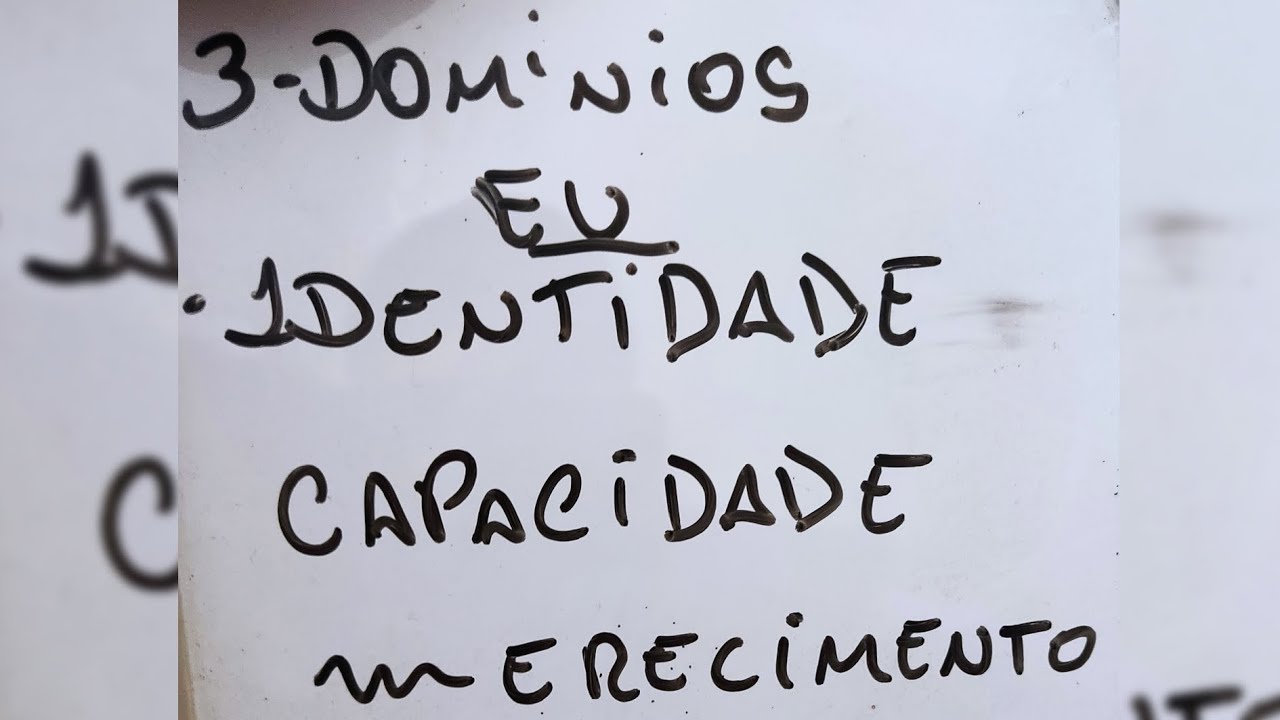 3-DOMINIOS
EU
· IDENTIDADE
CAPACIDADE
MERECIMENTO